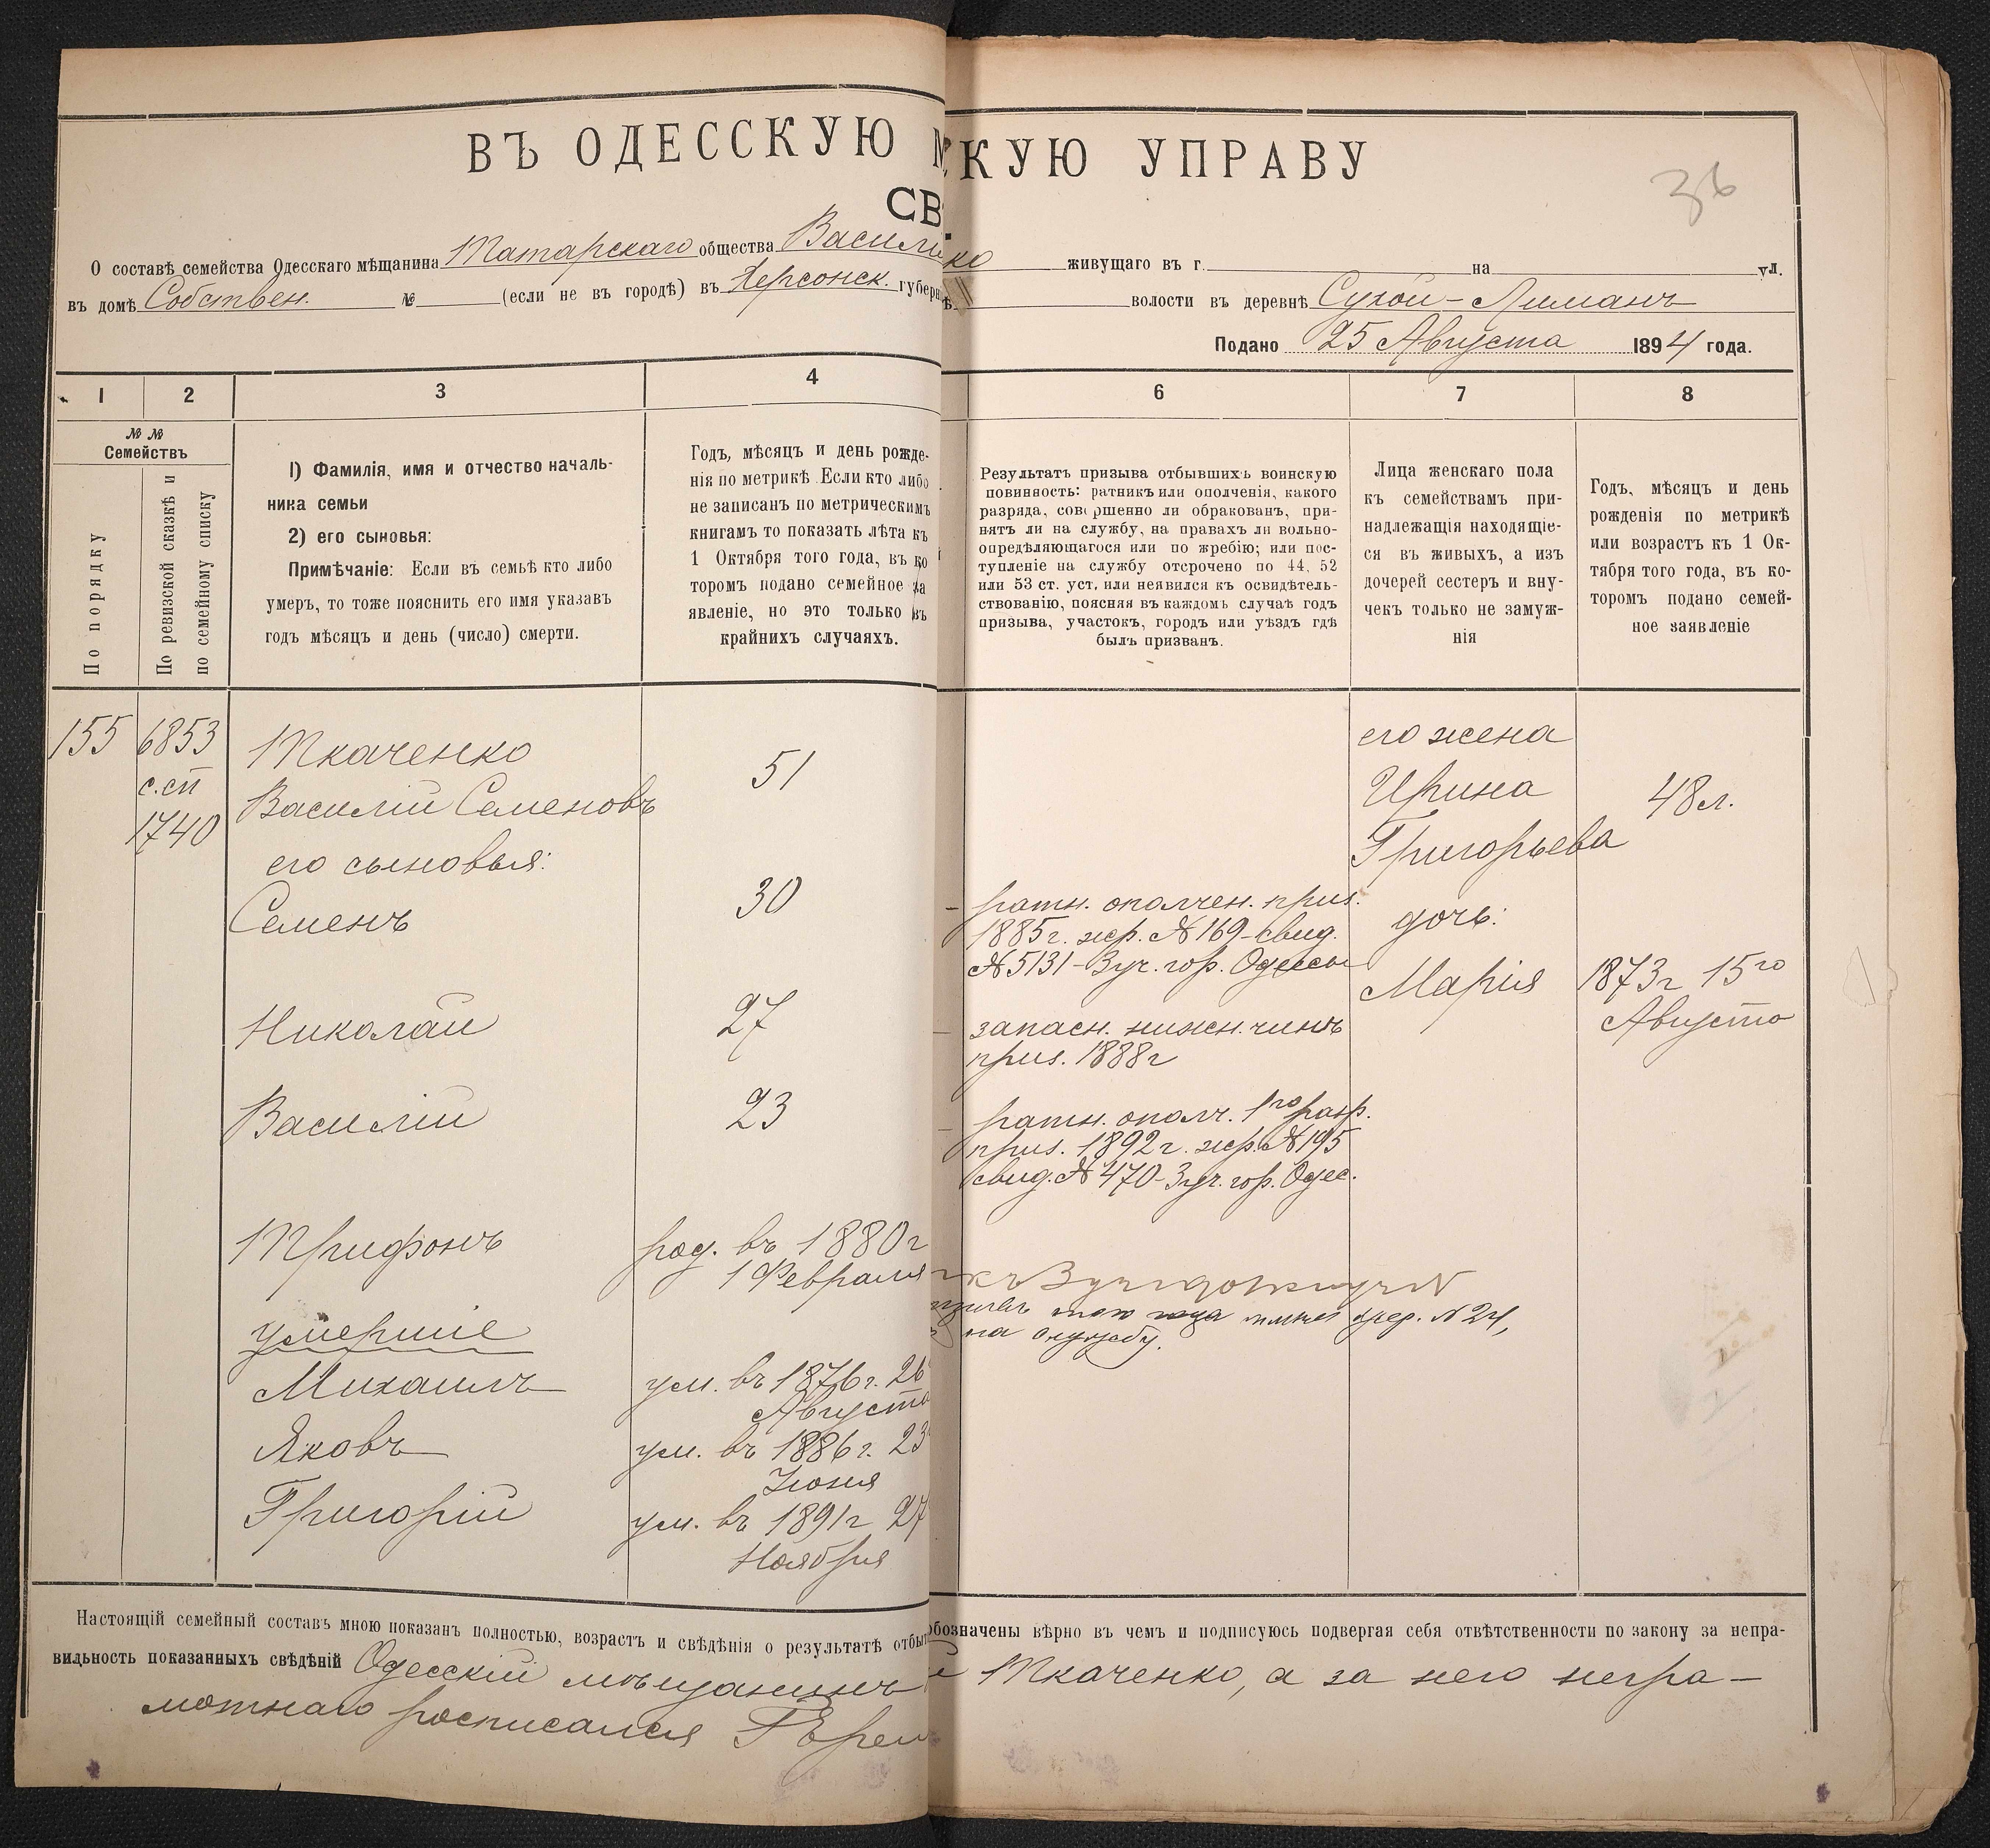 ВЪ ОДЕССКУЮ М
КУЮ УПРАВУ
36
СВ
О составѣ семейства Одесскаго мѣщанина Татарскаго общества Василі
ко живущаго въ г. на ул.
въ домѣ Собствен. № (если не въ городѣ) въ Херсонск. губерн
волости въ деревнѣ Сухой-Лиманъ
Подано 25 Августа 1894 года.
1 2 3 4
6 7 8
№ №
Семействъ
По порядку
По ревизской сказкѣ и
по семейному списку
1) Фамилія, имя и отчество началь-
ника семьи
2) его сыновья:
Примѣчаніе: Если въ семьѣ кто либо
умеръ, то тоже пояснить его имя указавъ
годъ мѣсяцъ и день (число) смерти.
Годъ, мѣсяцъ и день рожде-
нія по метрикѣ. Если кто либо
не записанъ по метрическимъ
книгамъ то показать лѣта къ
1 Октября того года, въ ко
торомъ подано семейное за
явленіе, но это только въ
крайнихъ случаяхъ.
Результатъ призыва отбывшихъ воинскую
повинность: ратникъ или ополченія, какого
разряда, совершенно ли обракованъ, при-
нятъ ли на службу, на правахъ ли вольно-
опредѣляющагося или по жребію; или пос-
тупленіе на службу отсрочено по 44, 52
или 53 ст. уст. или неявился къ освидѣтель-
ствованію, поясняя въ каждомъ случаѣ годъ
призыва, участокъ, городъ или уѣздъ гдѣ
былъ призванъ.
Лица женскаго пола
къ семействамъ при-
надлежащія находящіе-
ся въ живыхъ, а изъ
дочерей сестеръ и вну-
чекъ только не замуж-
нія
Годъ, мѣсяцъ и день
рожденія по метрикѣ
или возрастъ къ 1 Ок-
тября того года, въ ко-
торомъ подано семей-
ное заявленіе
155 6853
с.сп
1740
Ткаченко
Василій Семеновъ 51
его сыновья:
Семенъ 30
Николай 27
Василій 23
Трифонъ род. въ 1880г
1 Февраля
умершіе
Михаилъ ум. въ 1876г. 26
Августа
Яковъ ум. въ 1886г. 23
Іюня
Григорій ум. въ 1891г 27
Ноября
ратн. ополчен. приз.
1885г. жр. №169-свид.
№5131-3уч. гор. Одессы
запасн. нижн. чинъ
приз. 1888г
ратн. ополч. 1го разр.
приз. 1892г. жр. №195
свид. №470-3уч. гор. Одес.
къ 3 уч
№ 24,
на службу.
его жена
Ирина
Григорьева 48л.
дочь:
Марія 1873г 15го
Августа
Настоящій семейный составъ мною показанъ полностью, возрастъ и свѣдѣнія о результатѣ отбы
обозначены вѣрно въ чемъ и подписуюсь подвергая себя отвѣтственности по закону за непра-
вильность показанныхъ свѣдѣній Одесскій мѣщанинъ
Ткаченко, а за него негра-
мотнаго росписался Г Ерем